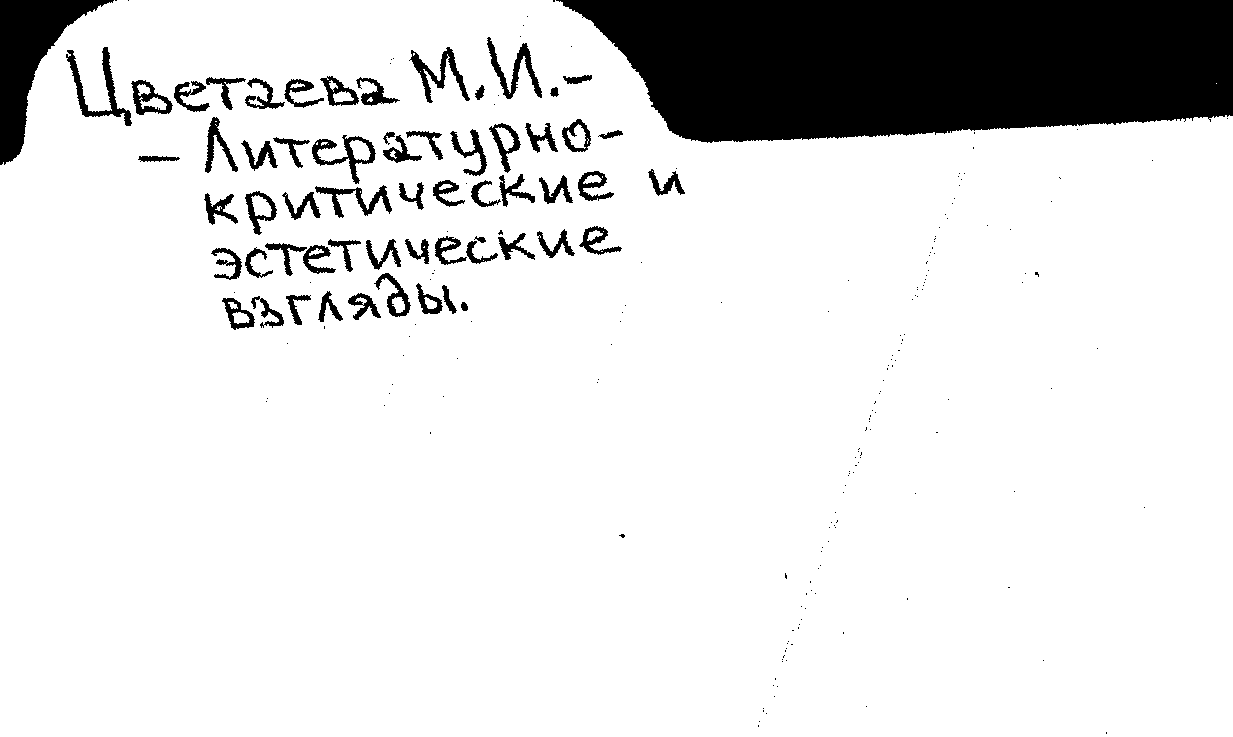 Цветаева М.И.-
- Литературно-
критические и
эстетические
взгляды.